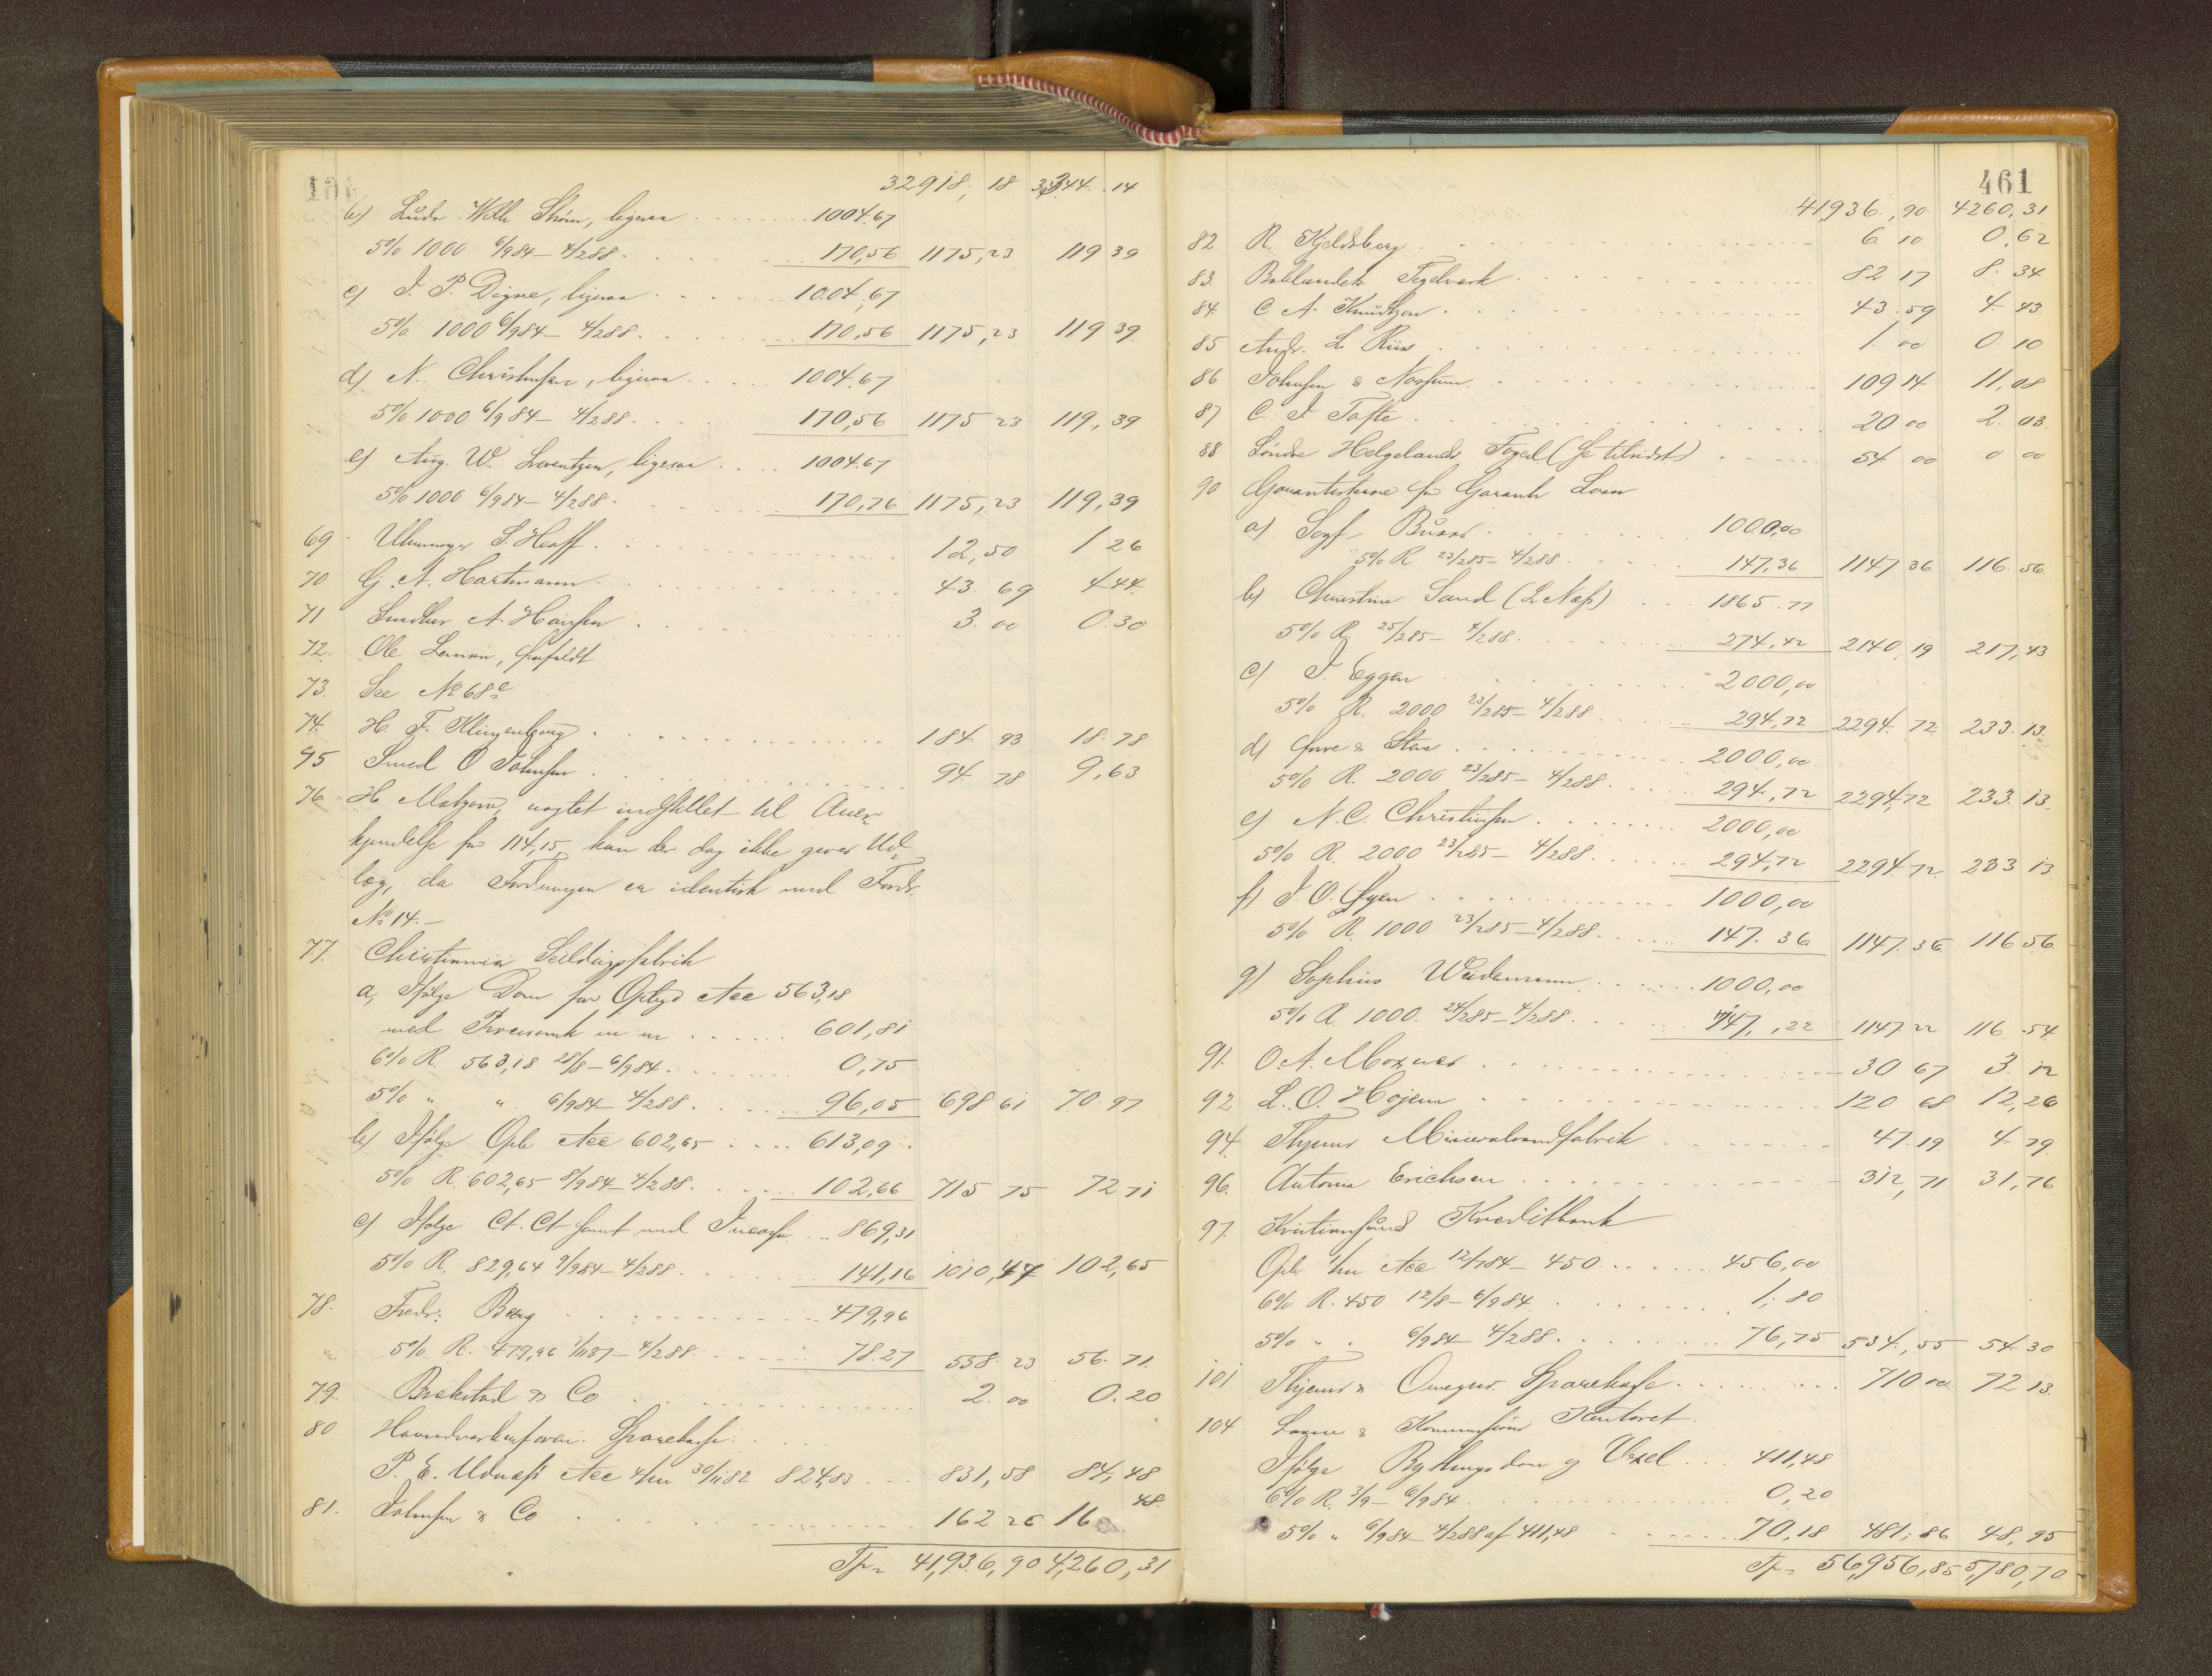 32918,18 3344.14
b) Ludv. Wilh Strøm, ligesaa 1004.67
5% 1000 6/9 84 – 4/2 88. 170,56 1175,23 119 39
c) J. P. Digre, ligesaa 1004,67
5% 1000 6/9 84 – 4/2 88. 170,56 1175,23 119 39
d) N. Christensen, ligesaa 1004.67
5% 1000 6/9 84 – 4/2 88. 170,56 1175 23 119,39
e) Aug. W. Lorentzen, ligesaa 1004.67
5% 1000 6/9 84 – 4/2 88. 170,76 1175,23 119,39
69 S. Hoff. 12,50 1 26
70 G. A. Hartmann 43.69 4.44
71 Snedker A. Hansen 3.00 0.30
72. Ole Leman, frafaldt
73. See No 68 e
74. H. F. Klingenberg 184 93 18.78
75 Smed O Johnsen 94 78 9,63
76 H. uagtet indstillet til Aner-
kjendelse for 114,15, kan der dog ikke gives Ud-
læg, da Fordringen er identisk med Fordr.
No 14.–
77. Christiania Seildugsfabrik
a, Ifølge Dom for Opbyd Acc 563,18
med Procesomk m m 601,81
6% R. 563,18 28/8 – 6/9 84. 0,75
5% " " 6/9 84 – 4/2 88. 96,05 698 61 70.97
b) Ifølge Opb Acc 602,65 613,09
5% R. 602,65 8/9 84 – 4/2 88. 102,66 715 75 72 71
c) Ifølge Ct. Ct samt med 869,31
5% R. 829,64 9/9 84 – 4/2 88. 141,16 1010,47 102,65
78. Fredr. Berg 479,96
5% R. 479,96 – 4/2 88. 78.27 558.23 56.71.
79. Brekstad & Co 2.00 0.20
80 Haandværkerforen. Sparekasse.
P. E. Udnæs Acc 30/11 82 824,83 831,58 84,48
81. Johnsen & Co 162 26 16 48.
Tp = 41,936,90 4,260,31
461
41,936,90 4260,31
82 R. Kjeldsberg 6 10 0,62
83. Baklandets Teglværk 82 17 8.34
84 C A. Knudtzon 43.59 4.43
85 Andr. L Riis 1 00 0.10
86 Johnsen & Nossum 109 14 11,08
87 C. J. Tofte 20 00 2.03
88 Søndre Helgelands Foged (Se tilsidst) 54 00 0 00
90 Garantisterne for Garanti Laan
a) Sogf. Buaas 1000,00
5% R 23/2 85 – 4/2 88. 147,36 1147 36 116.56
b) Christine Sand (L. Næss) 1865.77
5% R. 25/2 85 – 4/2 88. 274,42 2140,19 217,43
c) J. Eggen 2000,00
5% R. 2000 23/2 85 – 4/2 88 294,72 2294.72 233.13
d) Huve & Stav 2000,00
5% R. 2000 23/2 85 – 4/2 88. 294,72 2294,72 233.13
e) N. C. Christensen 2000,00
5% R. 2000 23/2 85 – 4/2 88. 294,72 2294.72 233 13
f) J. O. Øyen 1000,00
5% R. 1000 23/2 85 – 4/2 88. 147.36 1147.36 116 56
g) Sophus Weidemann 1000,00
5% R. 1000. 24/2 85 – 4/2 88. 147,22 1147 22 116.54
91. O. A. Moxnes 30 67 3.12
92 L. O. Hojem 120 68 12,26
94. Thjems Mineralvandfabrik 47.19 4.79
96. Antonia Erichsen 312,71 31,76
97. Kristiansunds Kreditbank
Opb Acc 12/7 84 – 450 456,00
6% R. 450 12/8 – 6/9 84. 1,80
5% " " 6/9 84 – 4/2 88. 76,75 534,55 54 30
101 Thjems & Omegns Sparekasse 710 00 72 13
104 Laane & Kommissions Kontoret
Ifølge Bythingsdom og Vexel 411,48
6% R. 3/9 – 6/9 84. 0,20
5% " 6/9 84 – 4/2 88 af 411,48 70,18 481,86 48,95
Tp = 56,956,85 5,780,70